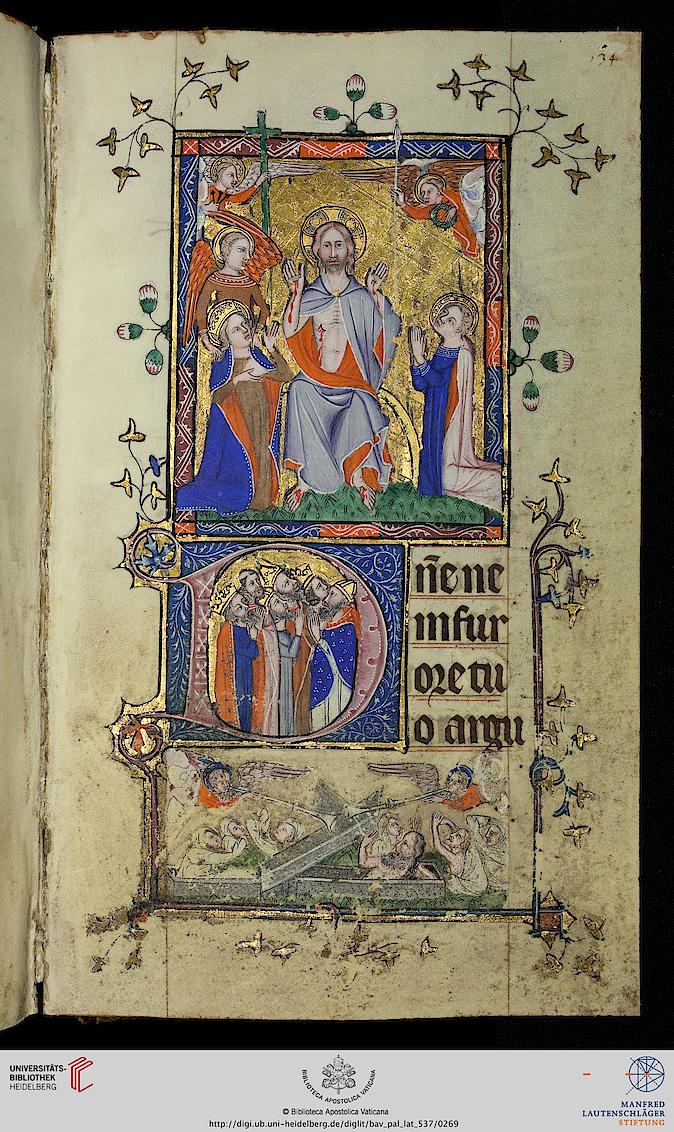 134
Dñe ne
in fur
ore tu
o argu
UNIVERSITÄTS-
BIBLIOTHEK
HEIDELBERG
BIBLIOTECA APOSTOLICA VATICANA
© Biblioteca Apostolica Vaticana
http://digi.ub.uni-heidelberg.de/diglit/bav_pal_lat_537/0269
MANFRED
LAUTENSCHLÄGER
STIFTUNG